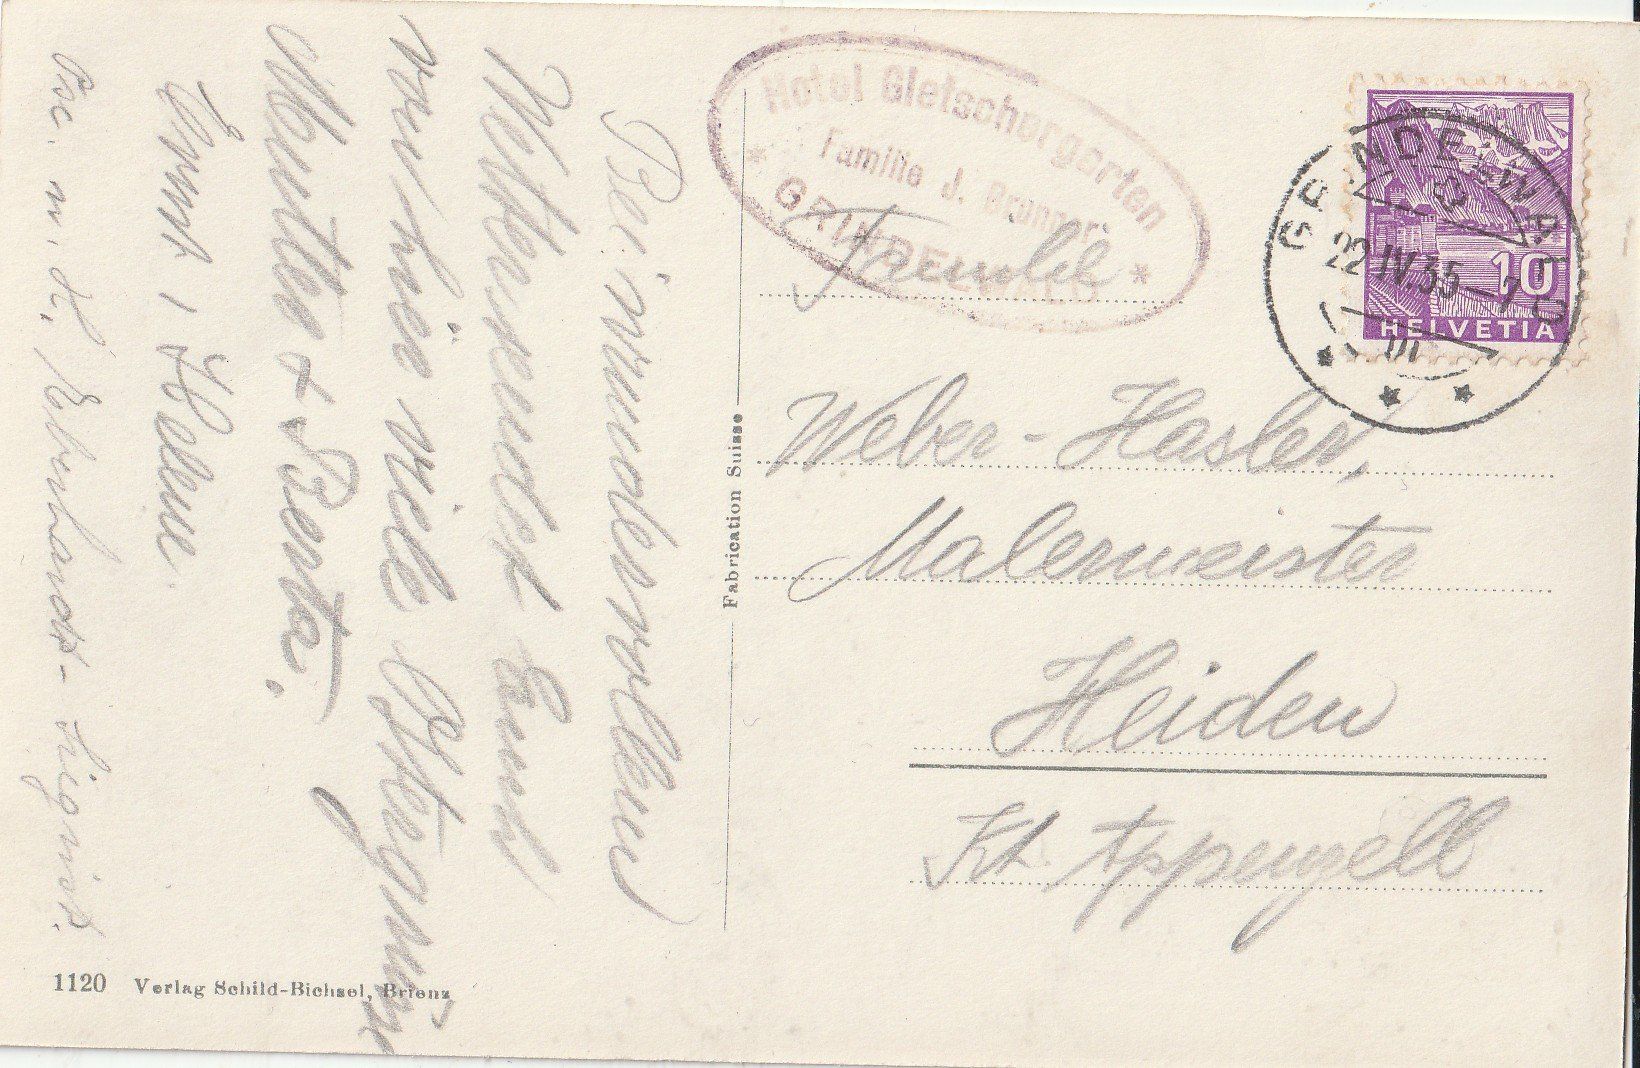 Bei wundervollem
Wetter sendet Euch
von hier viele Ostergrüsse
Mutter & Berta.
Ernst, Helene.
Hotel Gletschergarten
Familie J. Brunner
* GRINDELWALD *
GRINDELWALD
22.IV.35—7
10
HELVETIA
Familie
Weber-Hasler,
Malermeister
Heiden
Kt. Appenzell
Fabrication Suisse
1120 Verlag Schild-Bichsel, Brienz